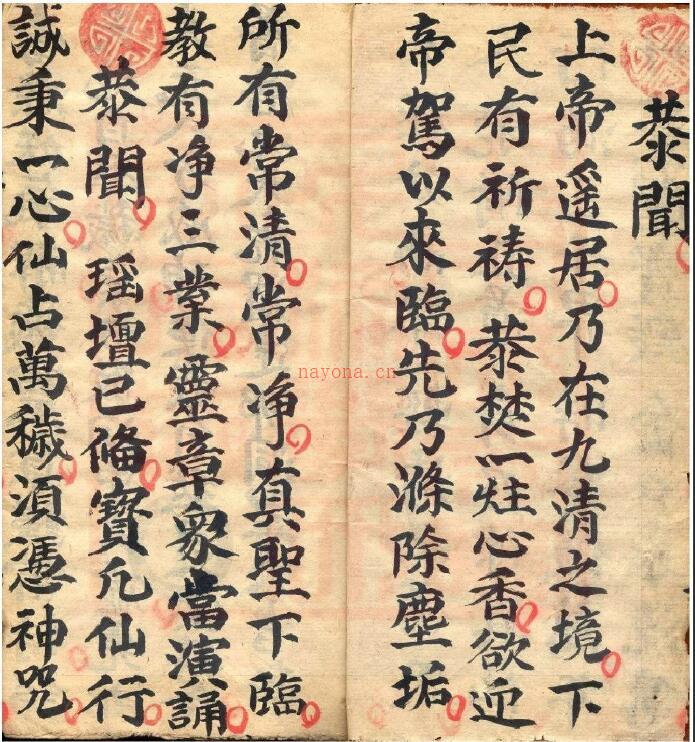 恭聞
上帝遥居乃在九清之境下
民有祈禱恭焚一炷心香欲迎
帝駕以來臨先乃滌除塵垢
所有常清常净真聖下臨
教有净三業靈章衆當演誦
恭聞瑶壇已俻寳几仙行
誠秉一心仙占萬穢須憑神咒
nayona.cn